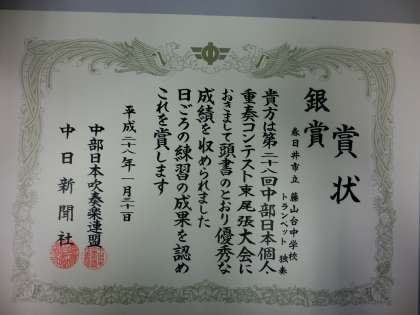 賞状
銀賞
春日井市立 藤山台中学校
トランペット 独奏
貴方は第二十八回中部日本個人・
重奏コンテスト東尾張大会に
おきまして頭書のとおり優秀な
成績を収められました
日ごろの練習の成果を認め
これを賞します
平成二十八年一月三十一日
中部日本吹奏楽連盟
中日新聞社